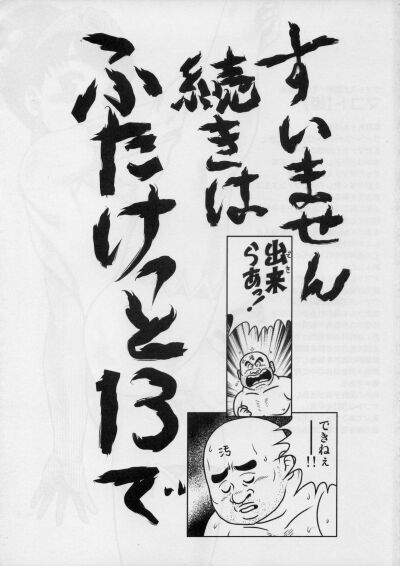 すいません
続きは
ふたけっと13で
出来らあっ!
でき
できねぇ
──!!
汚